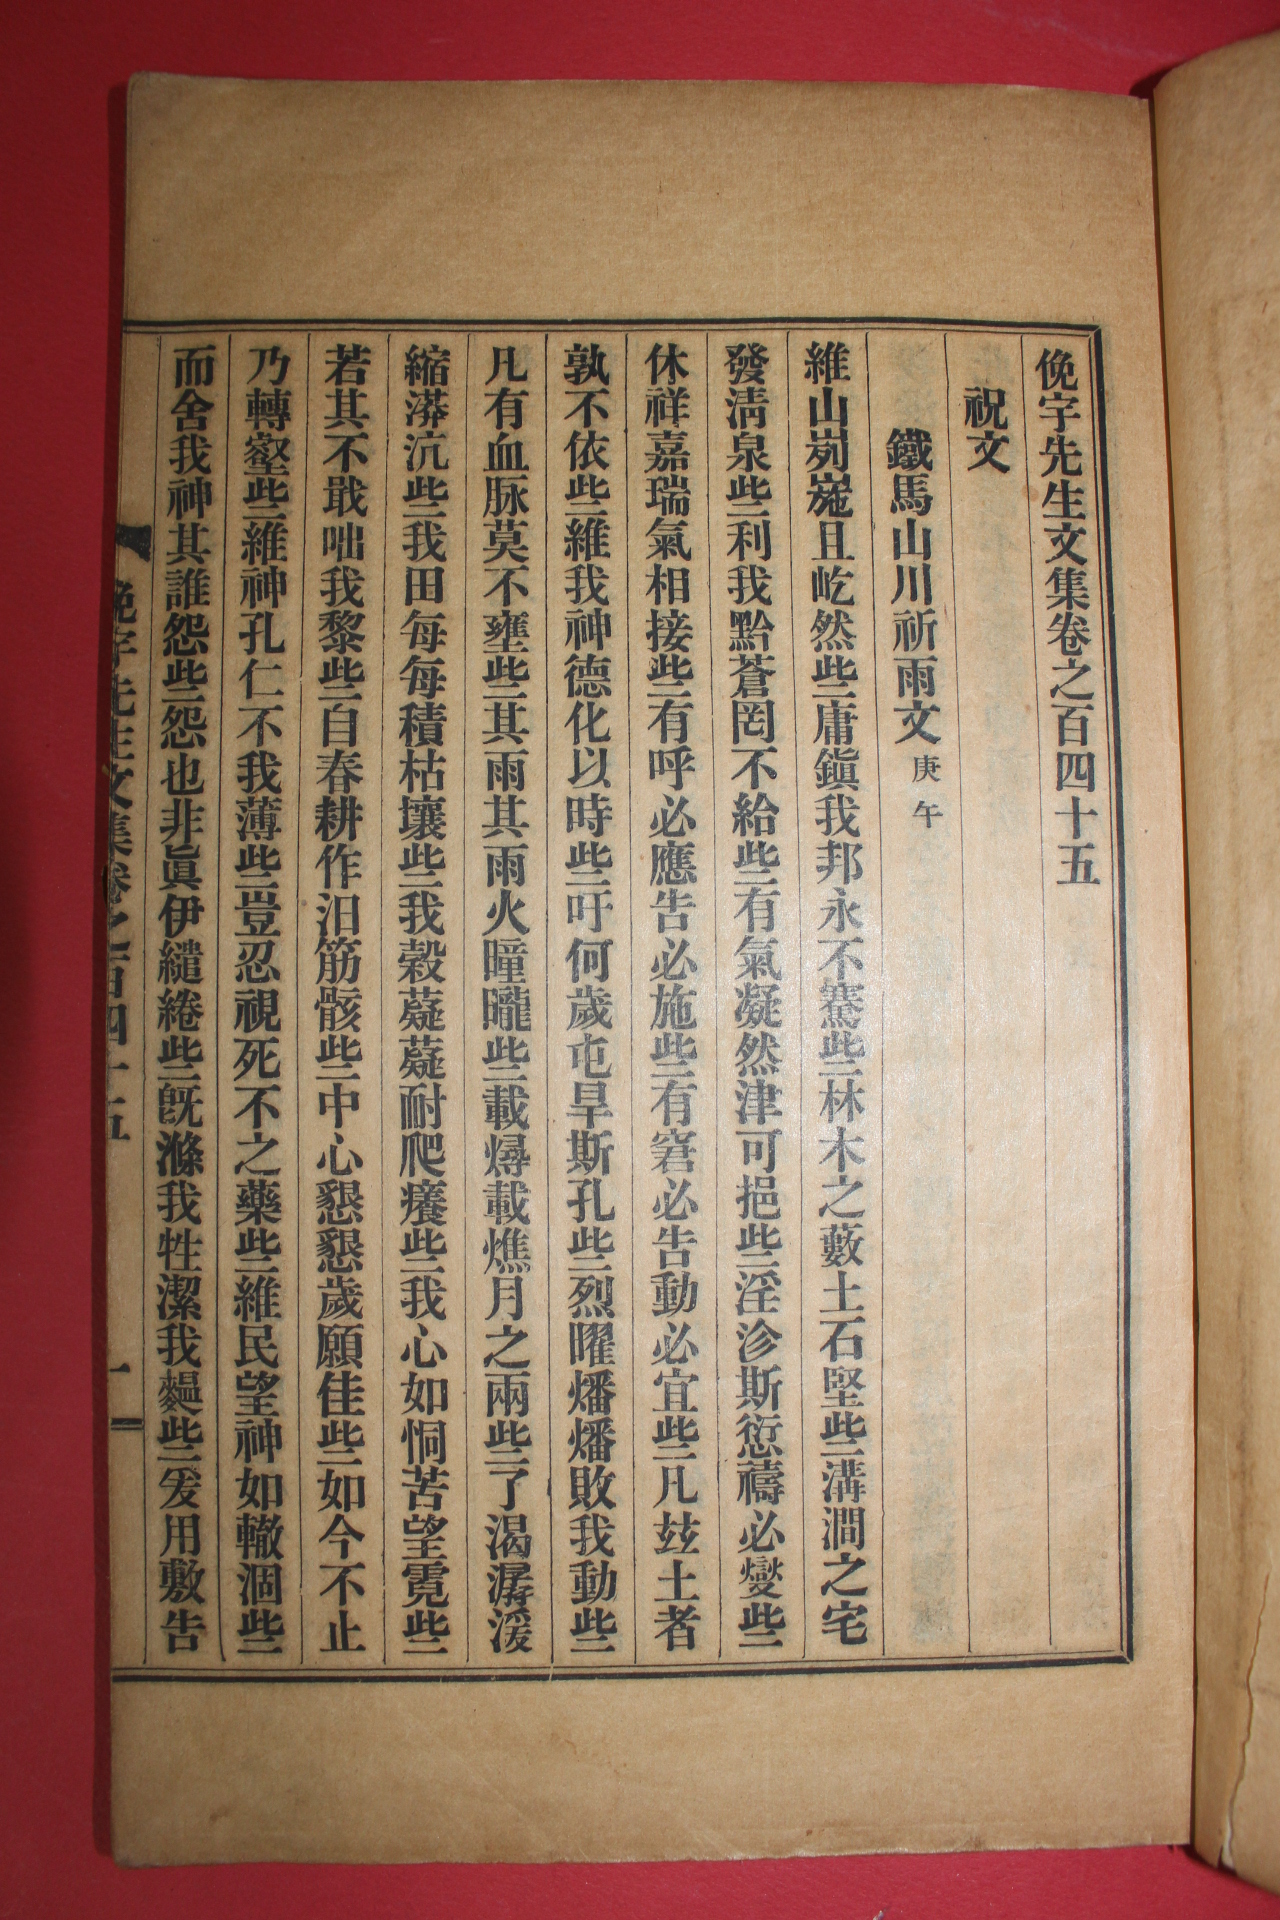 俛宇先生文集卷之百四十五
祝文
鐵馬山川祈雨文庚午
維山峛崺且屹然些二庸鎭我邦永不騫些二林木之藪土石堅些二溝澗之宅
發淸泉些二利我黔蒼罔不給些二有氣凝然津可挹些二淫沴斯愆禱必燮些二
休祥嘉瑞氣相接些二有呼必應告必施些二有窘必告動必宜些二凡玆土者
孰不依些二維我神德化以時些二吁何歲屯旱斯孔些二烈曜燔燔敗我動些二
凡有血脉莫不壅些二其雨其雨火曈曨些二載燖載燋月之兩些二了渴潺湲
縮漭沆些二我田每每積枯壤些二我穀薿薿耐爬癢些二我心如恫苦望霓些二
若其不戢咄我黎些二自春耕作汨筋骸些二中心懇懇歲願佳些二如今不止
乃轉壑些二維神孔仁不我薄些二豈忍視死不之藥些二維民望神如轍涸些二
而舍我神其誰怨些二怨也非眞伊繾綣些二旣滌我牲潔我些二爰用敷告
俛宇先生文集卷之百四十五
一